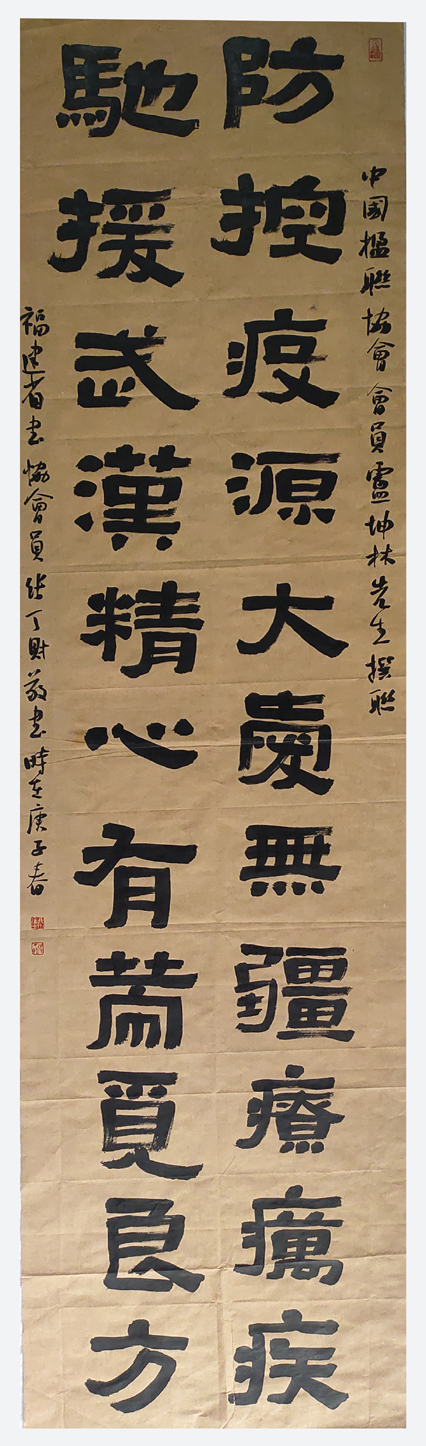 中國楹聯協會會員盧坤林先生撰聯
防控疫源大愛無疆療癘疾
馳援武漢精心有覓良方
福建省书協會員张丁財敬书時在庚子春